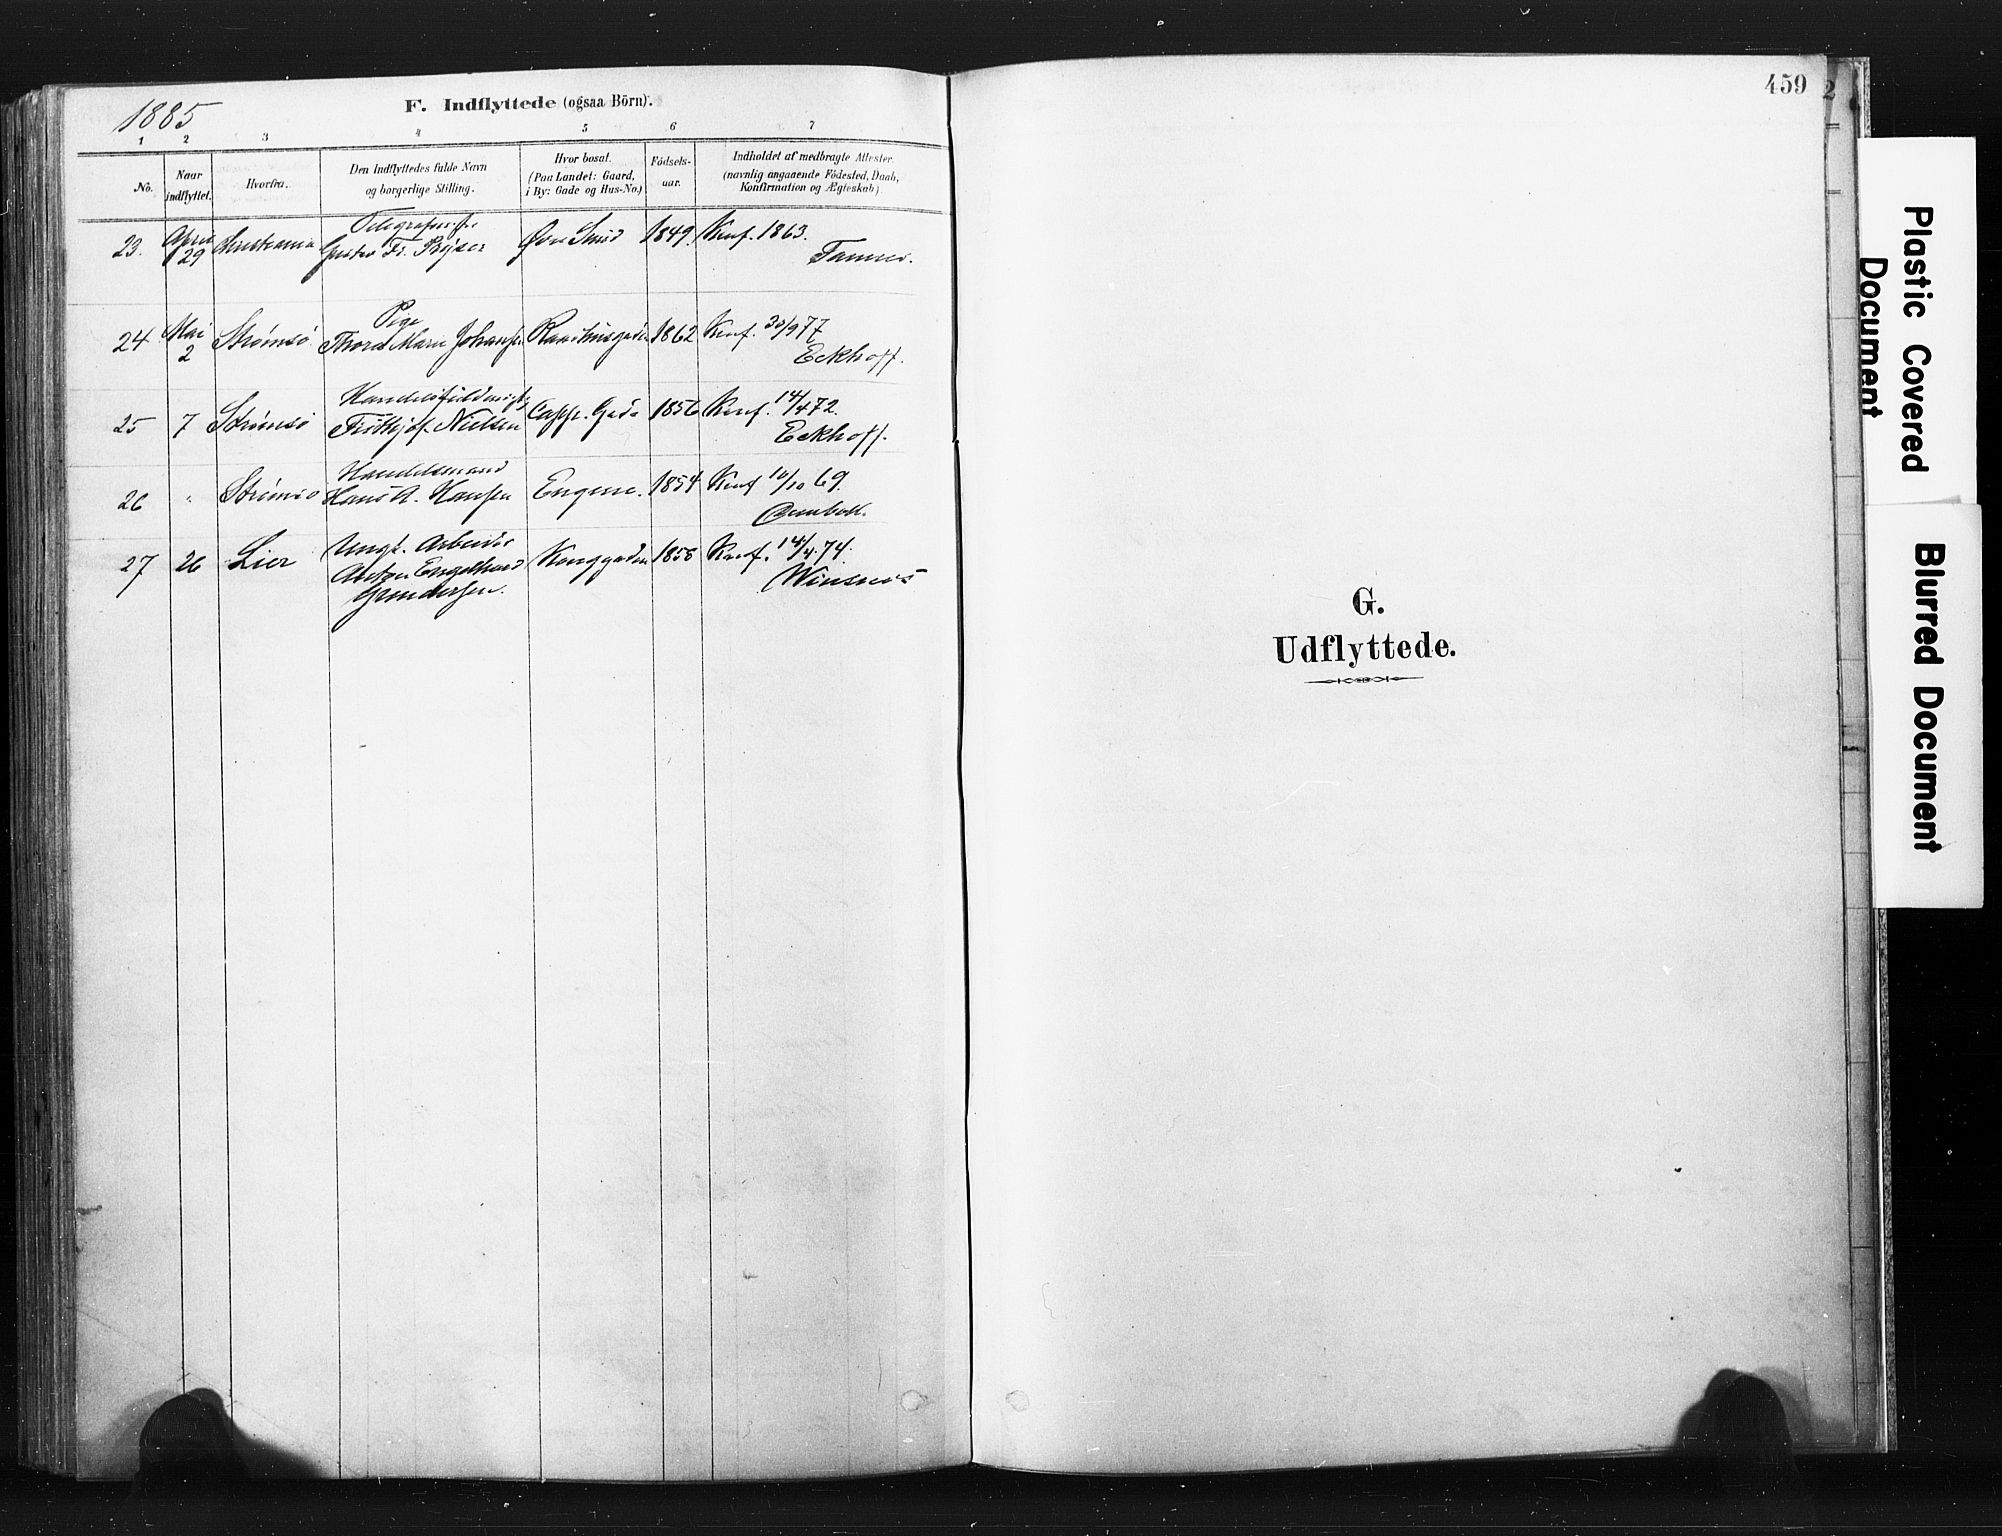 1885
F. Indflyttede (ogsaa Börn).
1 2 3 4 5 6 7
No.
Naar
indflyttet.
Hvorfra.
Den Indflyttedes fulde Navn
og borgerlige Stilling.
Hvor bosat.
(Paa Landet: Gaard,
i By: Gade og Hus-No.)
Födsels-
aar.
Indholdet af medbragte Attester.
(navnlig angaaende Födested, Daab,
Konfirmation og Ægteskab)
23. April 29 Fr. Øvre 1849. Konf. 1863.
24. Mai 2 Strømsö Pige
Marie Johansen 1862 Konf. 30/9 77
Eckhoff.
25 7 Strømsö
Frithjof Nielsen Capp. Gade 1856 Konf. 14/4 72.
Eckhoff.
26 " Strømsö Handelsmand
Hans A. Hansen Engene. 1854 Konf 10/10 69.
27 26 Lier Ungk. Arbeider
Anton Engelhard
Gundersen. Konggaden 1858 Konf. 14/4 74.
Winsnes
459
G.
Udflyttede.
2
Plastic Covered
Document
Blurred Document